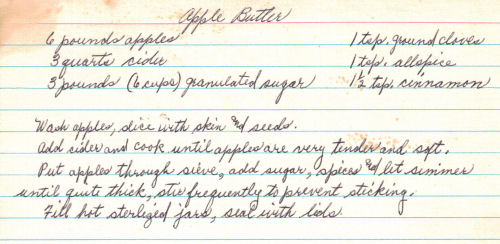 Apple Butter
6 pounds apples 1 tsp. ground cloves
3 quarts cider 1 tsp. allspice
3 pounds (6 cups) granulated sugar 1½ tsp. cinnamon
Wash apples, slice with skin and seeds.
Add cider and cook until apples are very tender and soft.
Put apples through sieve, add sugar, spices and let simmer
until quite thick, stir frequently to prevent sticking.
Fill hot sterlized jars, seal with lids